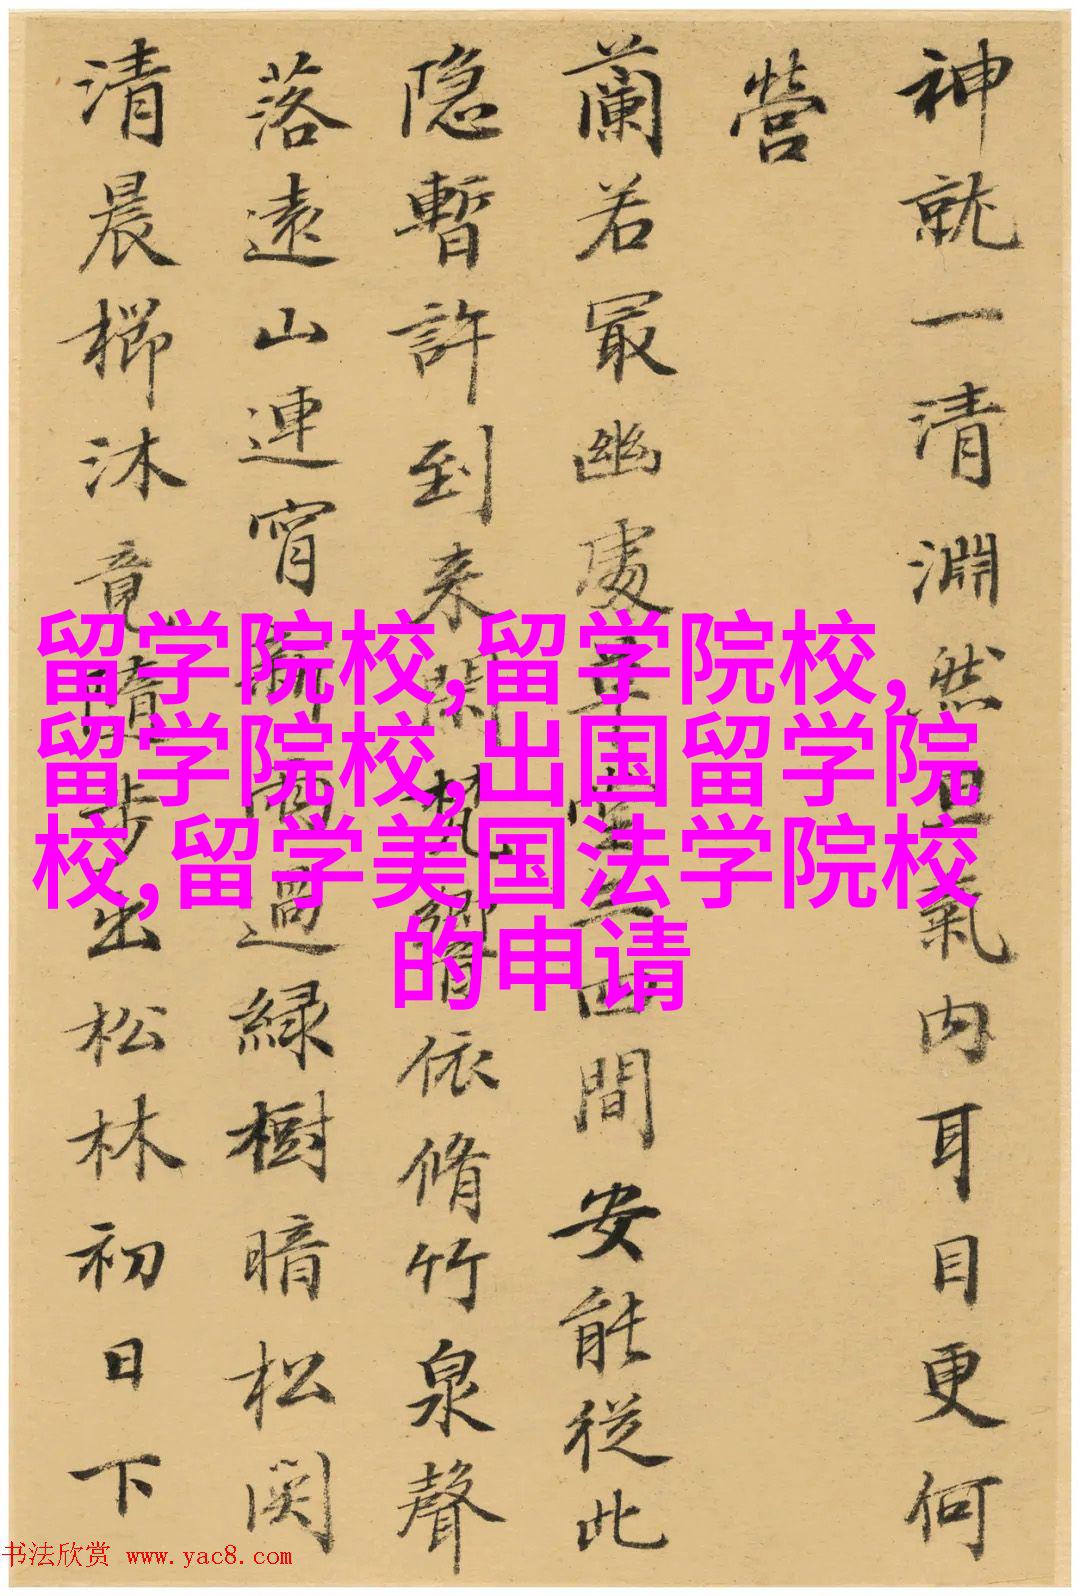 神就一清淵然氣内耳目更何
營
蘭若冣幽處草堂四間安能從此
隐暫許到来閑梵響依脩竹泉聲
落遠山連宵新雨過緑樹暗松関
清晨櫛沐竟隨步出松林初日下
留学院校,留学院校,
留学院校,出国留学院
校,留学美国法学院校
的申请
书法欣赏 www.yac8.com